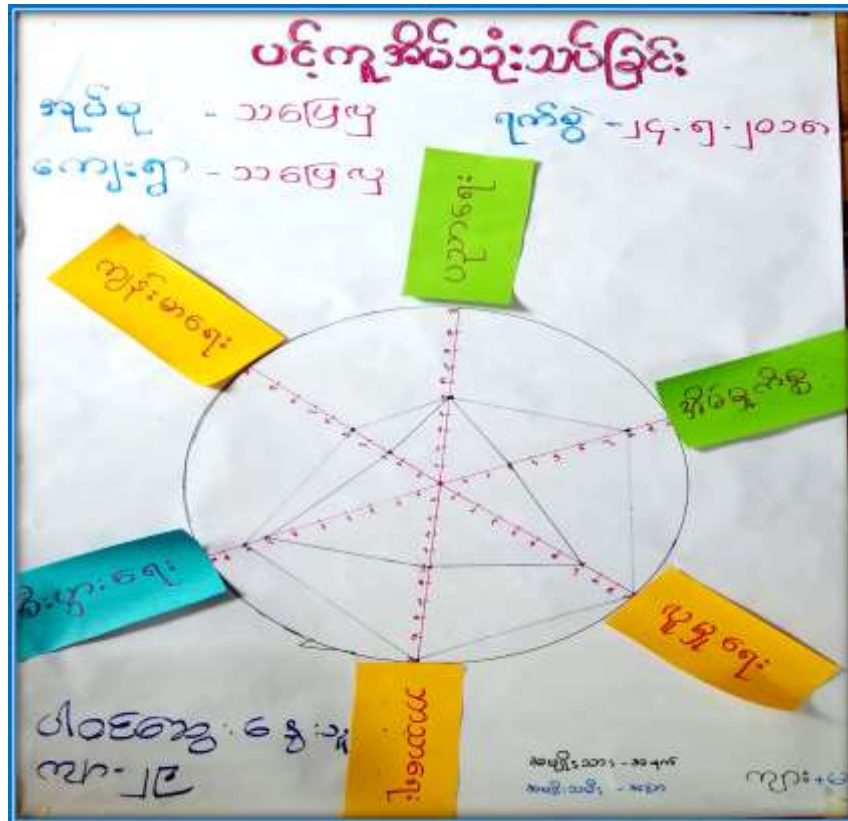 ပင့်ကူအိမ်သုံးသပ်ခြင်း
အုပ်စု - သပြေလှ
ရက်စွဲ - ၂၄.၅.၂၀၁၈
ကျေးရွာ - သပြေလှ
ပညာရေး
ကျန်းမာရေး
အိမ်မှုကိစ္စ
စီးပွားရေး
လူမှုရေး
သဘာဝ
ပါဝင်ဆွေးနွေးသူ
ကျား
အမျိုးသား - အနက်
အမျိုးသမီး - အပြာ
ကျား+မ